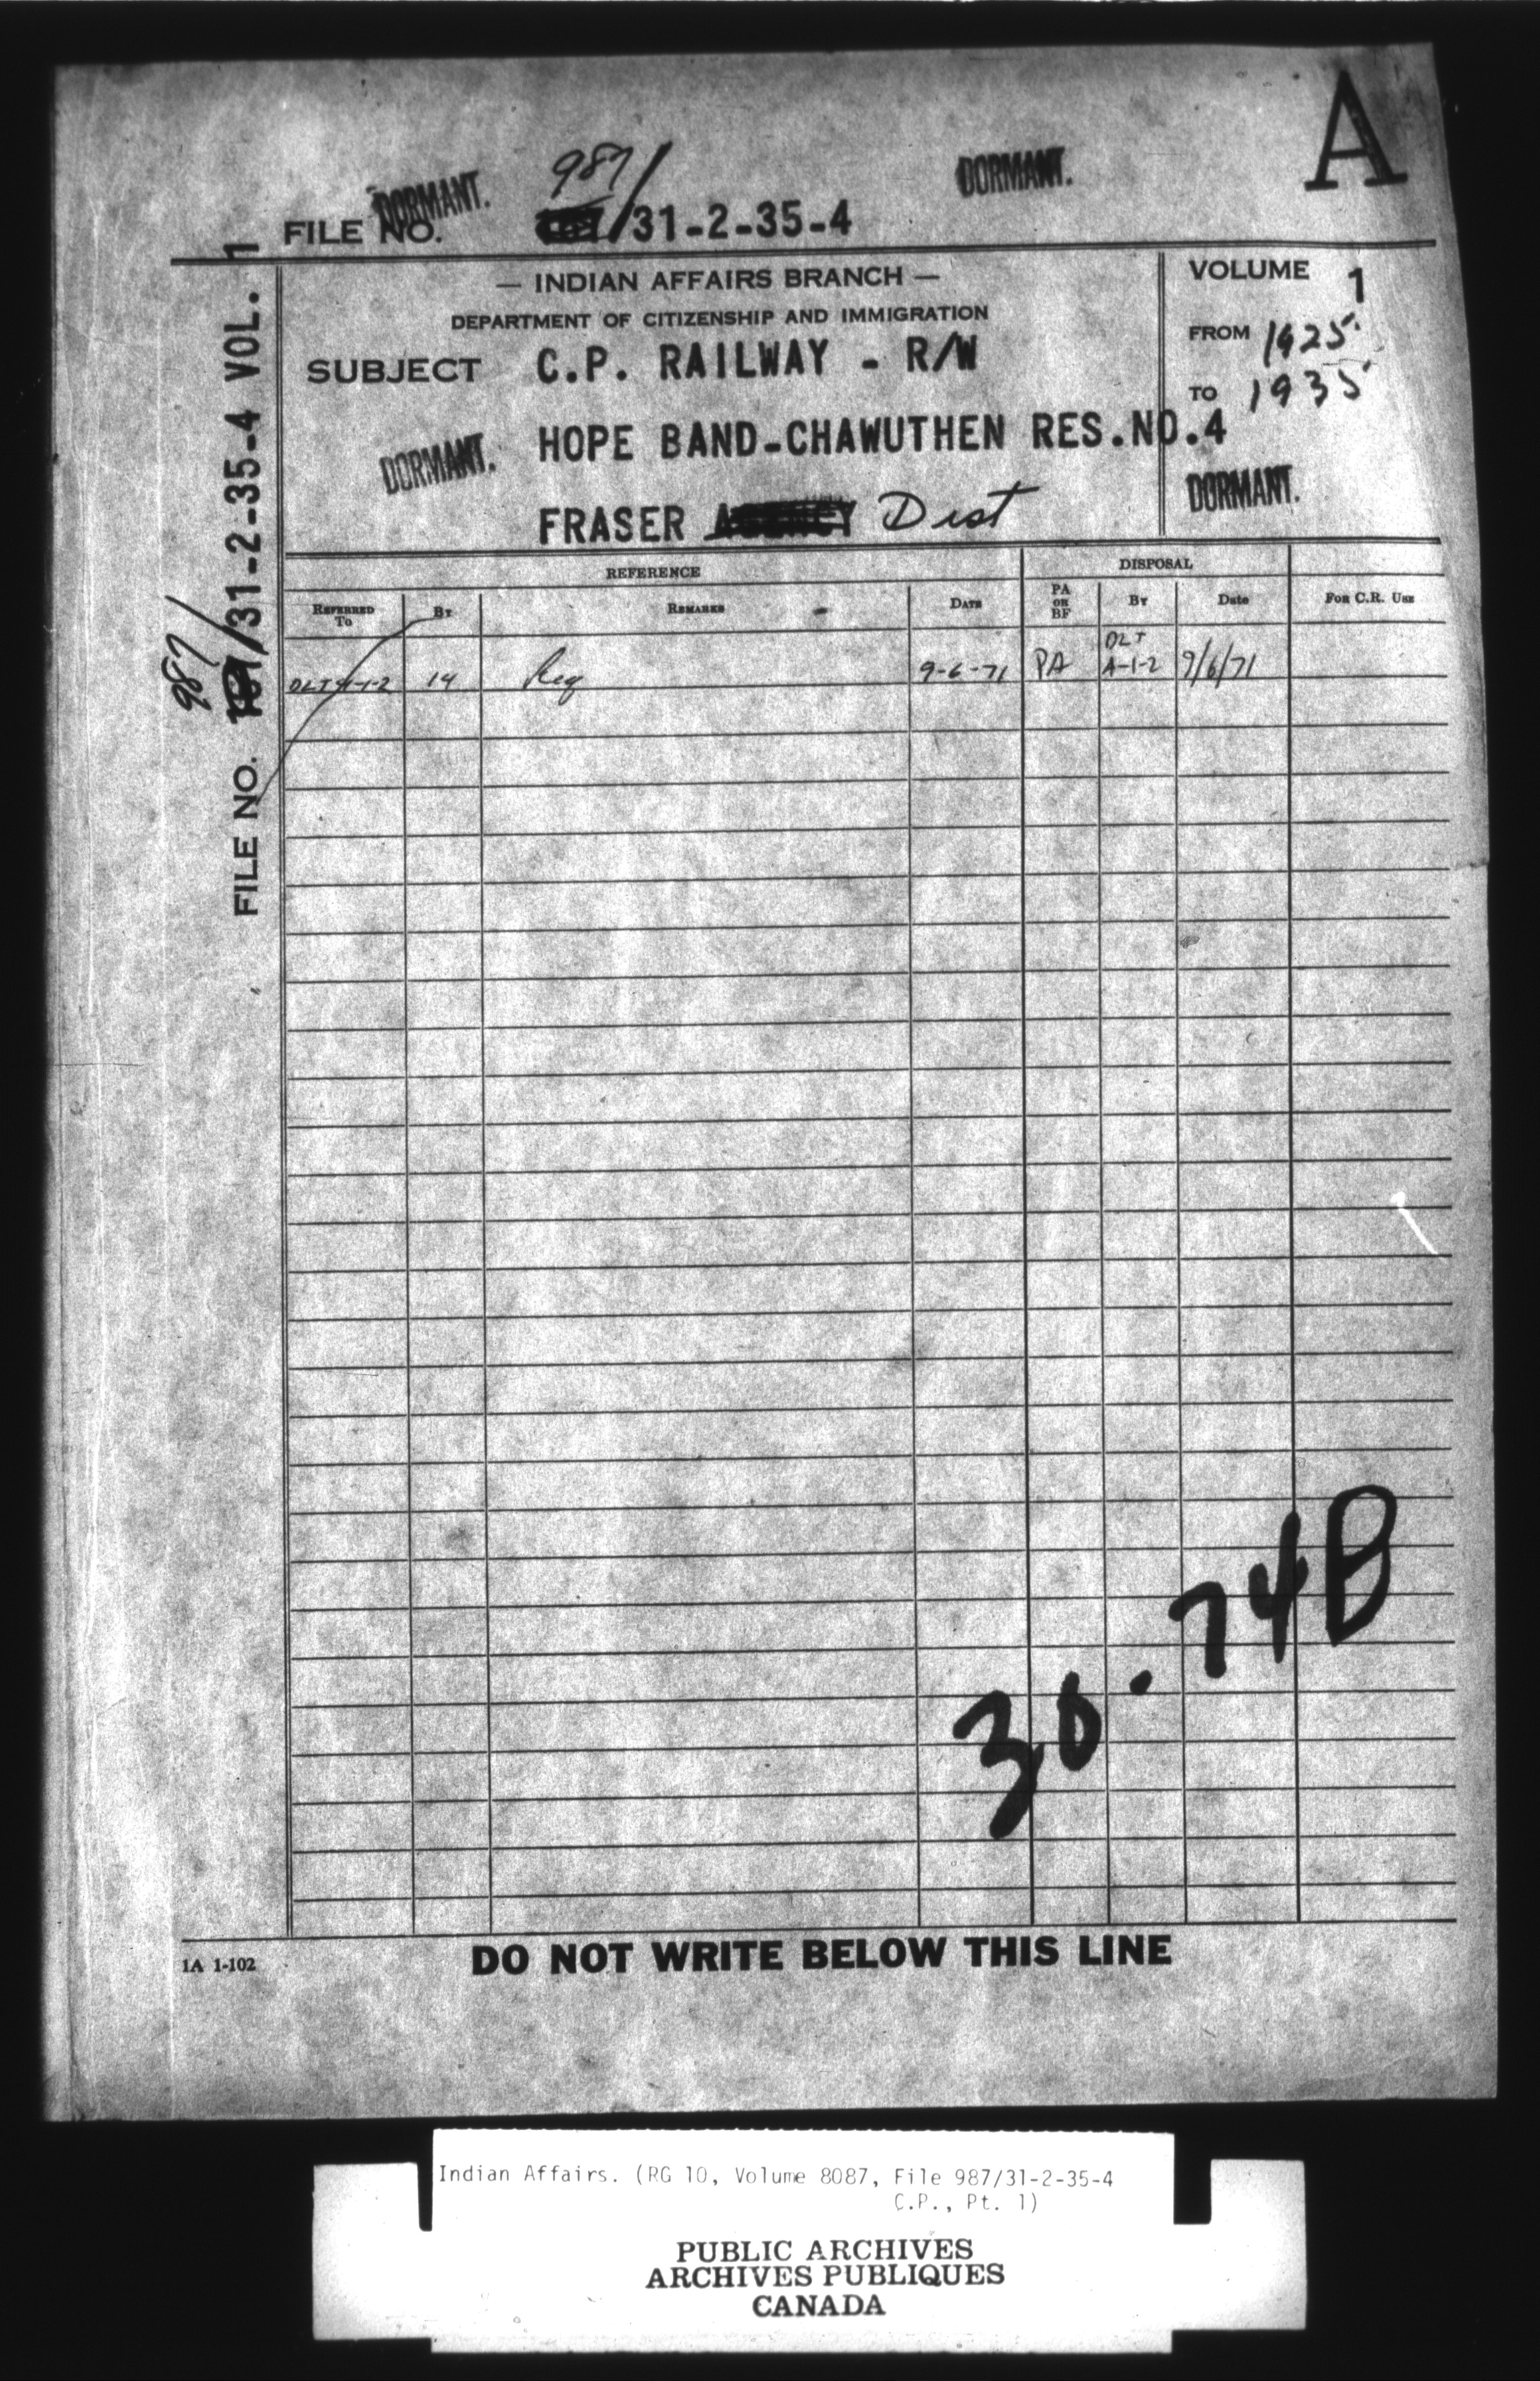 A
DORMANT.
987/
DORMANT.
FILE NO. /31-2-35-4
— INDIAN AFFAIRS BRANCH —
DEPARTMENT OF CITIZENSHIP AND IMMIGRATION
VOLUME 1
FROM 1925
TO 1935
SUBJECT C.P. RAILWAY - R/W
HOPE BAND-CHAWUTHEN RES.NO.4
DORMANT.
DORMANT.
FRASER AGENCY Dist
FILE NO. /31-2-35-4 VOL. 1
987/
REFERENCE
DISPOSAL
REFERRED TO
BY
REMARKS
DATE
PA OR BF
BY
Date
FOR C.R. USE
DLT A-1-2 14 Req 9-6-71 PA DLT A-1-2 9/6/71
30.74B
1A 1-102
DO NOT WRITE BELOW THIS LINE
Indian Affairs. (RG 10, Volume 8087, File 987/31-2-35-4
C.P., Pt. 1)
PUBLIC ARCHIVES
ARCHIVES PUBLIQUES
CANADA